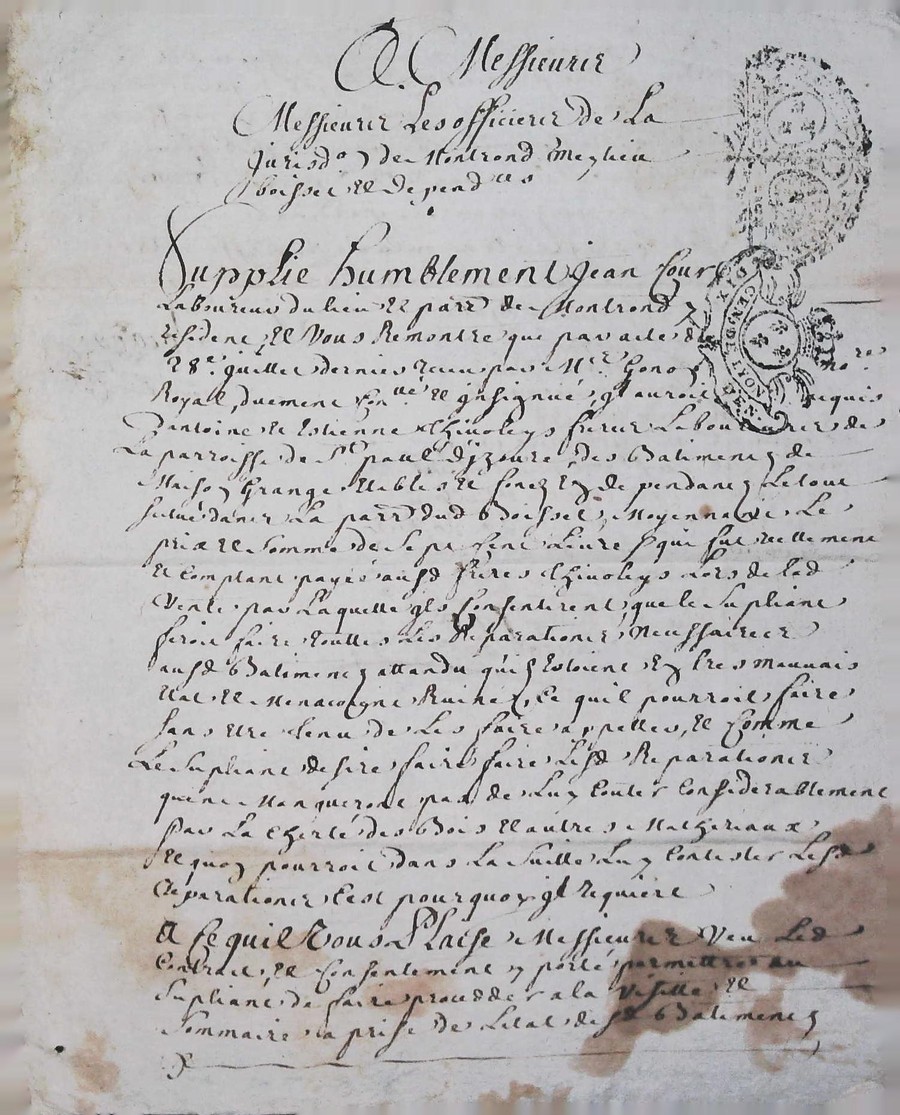 A Messieurs
Messieurs Les officiers de La
Jurisdon de Montrond Meylieu
boisset et dependces
Supplie humblement Jean Cour
Laboureur du lieu et parre de Montrond y
residant et Vous Remontre que par acte du
28e juillet dernier receu par Me Gonon no.re
Royal, duement Conllé et insignué, il auroit acquis
d'antoine et Estienne Chivoleys freres Laboureurs de
La parroisse de St paul d'izoure des Batiments de
Maison Grange Etables et fonez En dependants Le tout
situé dans La parre dud Boisset, Moyennant Le
prix et somme de sept Cent Livres que fut reellement
et Comptant payée ausd freres Chivoleys Lors de lad
Vente par Laquelle ils Consentirent que le supliant
feroit faire touttes Les Reparations Neussaires
ausd Batiments attandu qu'ils Estoient En tres mauvais
Etat et Menacoient Ruine, Ce quil pourroit faire
sans etre tenu de Les faire appeller, et Comme
Le supliant desire faire faire Lesd Reparations
qui ne Manqueront pas de Luy Couter Considerablement
par La Cherté des Bois et autres Matheriaux
et quon pourroit dans La suitte Luy Contester Lesd
Reparations C'est pourquoy il requiere
A Ce quil Vous Plaise Messieurs Veu Led
Contrat, et Consentement y porté permettre au
supliant de faire proceder a la Visitte et
Sommaire a prise de Letat desd Batiments
DIX
GEN. DE LYON
DEN.